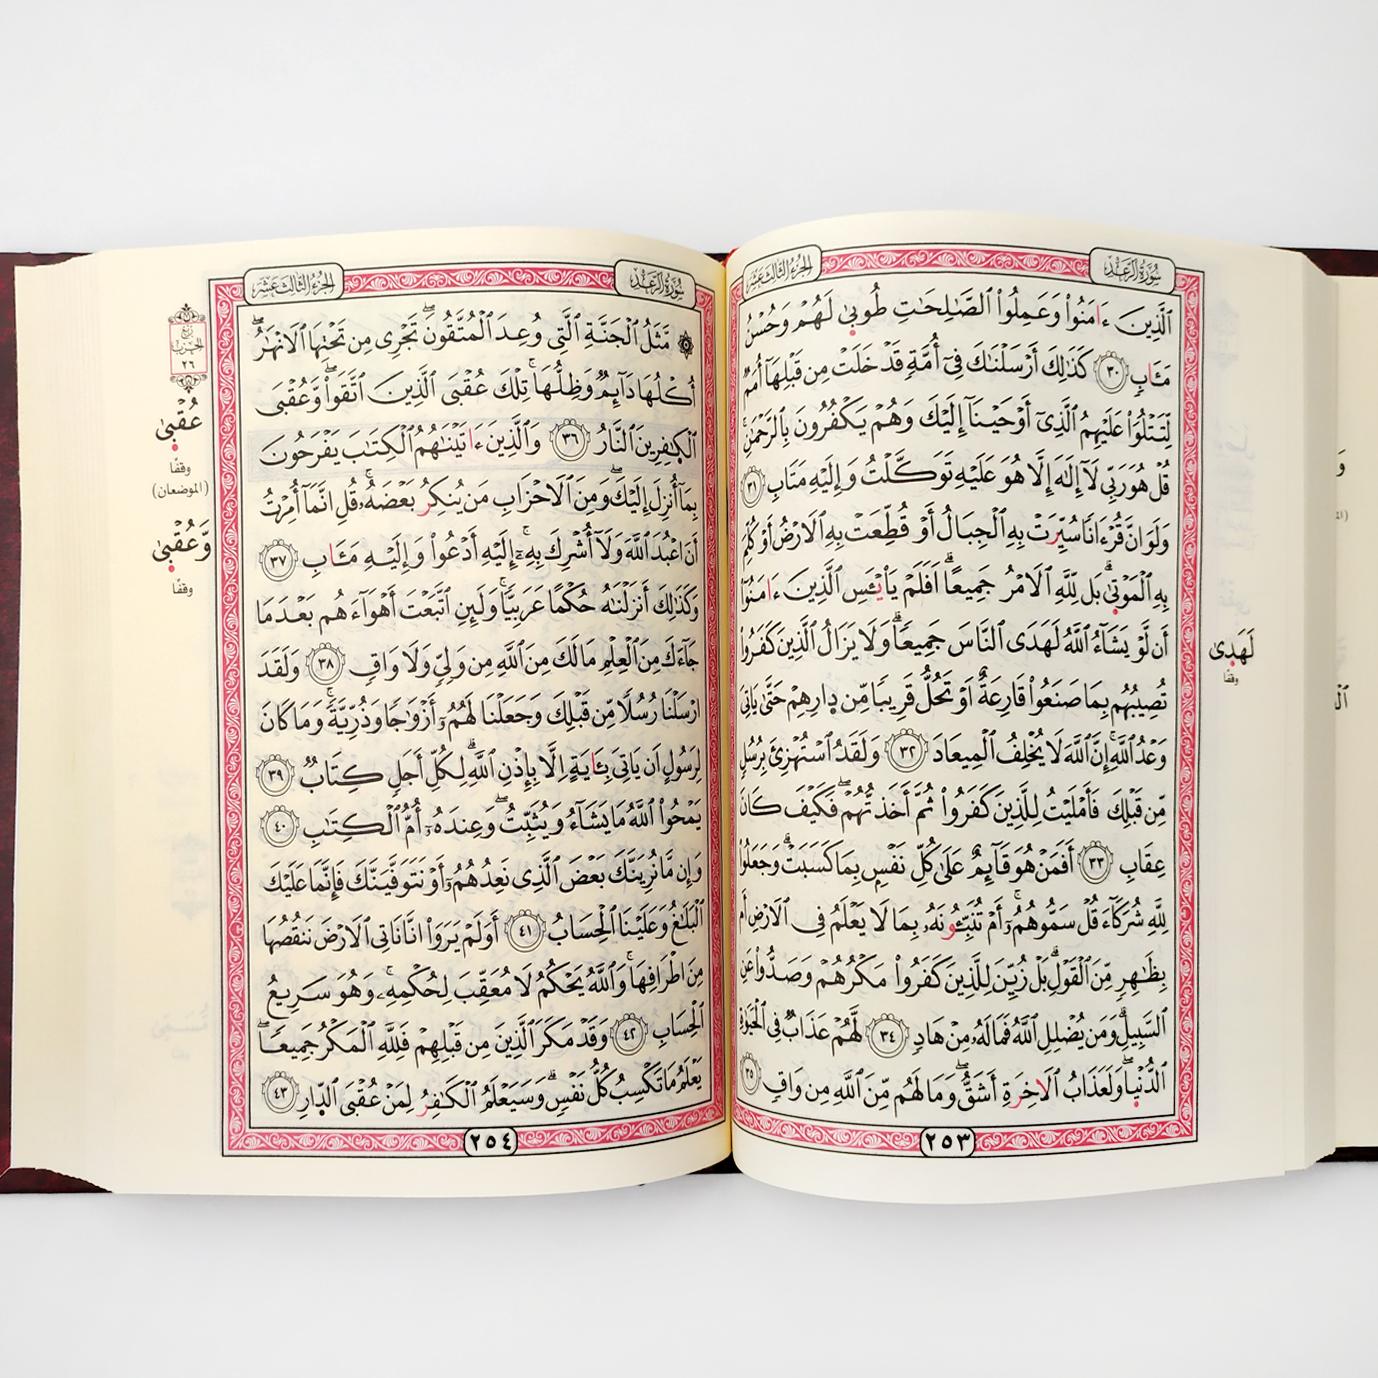 سُورَةُ الرَّعْدِ
الجُزْءُ الثَّالِثَ عَشَرَ
الَّذِينَ ءَامَنُواْ وَعَمِلُواْ الصَّٰلِحَٰتِ طُوبَىٰ لَهُمْ وَحُسْنُ
مَـَٔابٍ ٣٠ كَذَٰلِكَ أَرْسَلْنَٰكَ فِىٓ أُمَّةٍ قَدْ خَلَتْ مِن قَبْلِهَآ أُمَمٌ
لِّتَتْلُوَاْ عَلَيْهِمُ الَّذِىٓ أَوْحَيْنَآ إِلَيْكَ وَهُمْ يَكْفُرُونَ بِالرَّحْمَٰنِ
قُلْ هُوَ رَبِّى لَآ إِلَٰهَ إِلَّا هُوَ عَلَيْهِ تَوَكَّلْتُ وَإِلَيْهِ مَتَابِ ٣١
وَلَوَ انَّ قُرْءَانًا سُيِّرَتْ بِهِ الْجِبَالُ أَوْ قُطِّعَتْ بِهِ الَارْضُ أَوْ كُلِّمَ
بِهِ الْمَوْتَىٰ بَل لِّلَّهِ الَامْرُ جَمِيعًا اَفَلَمْ يَاْيْـَٔسِ الَّذِينَ ءَامَنُوٓاْ
أَن لَّوْ يَشَآءُ اللَّهُ لَهَدَى النَّاسَ جَمِيعًا وَلَا يَزَالُ الَّذِينَ كَفَرُواْ
تُصِيبُهُم بِمَا صَنَعُواْ قَارِعَةٌ اَوْ تَحُلُّ قَرِيبًا مِّن دِارِهِمْ حَتَّىٰ يَاتِىَ
وَعْدُ اللَّهِ إِنَّ اللَّهَ لَا يُخْلِفُ الْمِيعَادَ ٣٢ وَلَقَدُ اسْتُهْزِئَ بِرُسُلٍ
مِّن قَبْلِكَ فَأَمْلَيْتُ لِلَّذِينَ كَفَرُواْ ثُمَّ أَخَذتُّهُمْ فَكَيْفَ كَانَ
عِقَابِ ٣٣ أَفَمَنْ هُوَ قَآئِمٌ عَلَىٰ كُلِّ نَفْسٍ بِمَا كَسَبَتْ وَجَعَلُواْ
لِلَّهِ شُرَكَآءَ قُلْ سَمُّوهُمُۥٓ أَمْ تُنَبِّـُٔونَهُۥ بِمَا لَا يَعْلَمُ فِى الَارْضِ أَم
بِظَٰهِرٍ مِّنَ الْقَوْلِ بَلْ زُيِّنَ لِلَّذِينَ كَفَرُواْ مَكْرُهُمْ وَصَدُّواْ عَنِ
السَّبِيلِ وَمَن يُضْلِلِ اللَّهُ فَمَا لَهُۥ مِنْ هَادٍ ٣٤ لَّهُمْ عَذَابٌ فِى الْحَيَوٰةِ
الدُّنْيَا وَلَعَذَابُ الَاخِرَةِ أَشَقُّ وَمَا لَهُم مِّنَ اللَّهِ مِن وَاقٍ ٣٥
٢٥٣
لَهَدَى
وقفًا
سُورَةُ الرَّعْدِ
الجُزْءُ الثَّالِثَ عَشَرَ
مَّثَلُ الْجَنَّةِ الَّتِى وُعِدَ الْمُتَّقُونَ تَجْرِى مِن تَحْتِهَا الَانْهَٰرُ
أُكْلُهَا دَآئِمٌ وَظِلُّهَا تِلْكَ عُقْبَى الَّذِينَ اَتَّقَواْ وَّعُقْبَى
الْكَٰفِرِينَ النَّارُ ٣٦ وَالَّذِينَ ءَاتَيْنَٰهُمُ الْكِتَٰبَ يَفْرَحُونَ
بِمَآ أُنزِلَ إِلَيْكَ وَمِنَ الَاحْزَابِ مَن يُنكِرُ بَعْضَهُۥ قُلِ انَّمَآ أُمِرْتُ
أَنَ اعْبُدَ اللَّهَ وَلَآ أُشْرِكَ بِهِۦٓ إِلَيْهِ أَدْعُواْ وَإِلَيْهِ مَـَٔابِ ٣٧
وَكَذَٰلِكَ أَنزَلْنَٰهُ حُكْمًا عَرَبِيًّا وَلَئِنِ اتَّبَعْتَ أَهْوَآءَهُم بَعْدَ مَا
جَآءَكَ مِنَ الْعِلْمِ مَا لَكَ مِنَ اللَّهِ مِن وَلِىٍّ وَلَا وَاقٍ ٣٨ وَلَقَدَ
ارْسَلْنَا رُسُلًا مِّن قَبْلِكَ وَجَعَلْنَا لَهُمُۥٓ أَزْوَٰجًا وَذُرِّيَّةً وَمَا كَانَ
لِرَسُولٍ اَن يَاتِىَ بِـَٔايَةٍ اِلَّا بِإِذْنِ اللَّهِ لِكُلِّ أَجَلٍ كِتَابٌ ٣٩
يَمْحُواْ اللَّهُ مَا يَشَآءُ وَيُثَبِّتُ وَعِندَهُۥٓ أُمُّ الْكِتَٰبِ ٤٠
وَإِن مَّا نُرِيَنَّكَ بَعْضَ الَّذِى نَعِدُهُمُۥٓ أَوْ نَتَوَفَّيَنَّكَ فَإِنَّمَا عَلَيْكَ
الْبَلَٰغُ وَعَلَيْنَا الْحِسَابُ ٤١ أَوَلَمْ يَرَوَاْ انَّا نَاتِى الَارْضَ نَنقُصُهَا
مِنَ اطْرَافِهَا وَاللَّهُ يَحْكُمُ لَا مُعَقِّبَ لِحُكْمِهِۦ وَهُوَ سَرِيعُ
الْحِسَابِ ٤٢ وَقَدْ مَكَرَ الَّذِينَ مِن قَبْلِهِمْ فَلِلَّهِ الْمَكْرُ جَمِيعًا
يَعْلَمُ مَا تَكْسِبُ كُلُّ نَفْسٍ وَسَيَعْلَمُ الْكَٰفِرُ لِمَنْ عُقْبَى الدِّارِ ٤٣
٢٥٤
رُبْع
الحِزْب
٢٦
عُقْبَى
وقفًا
(الموضعان)
وَّعُقْبَى
وقفًا